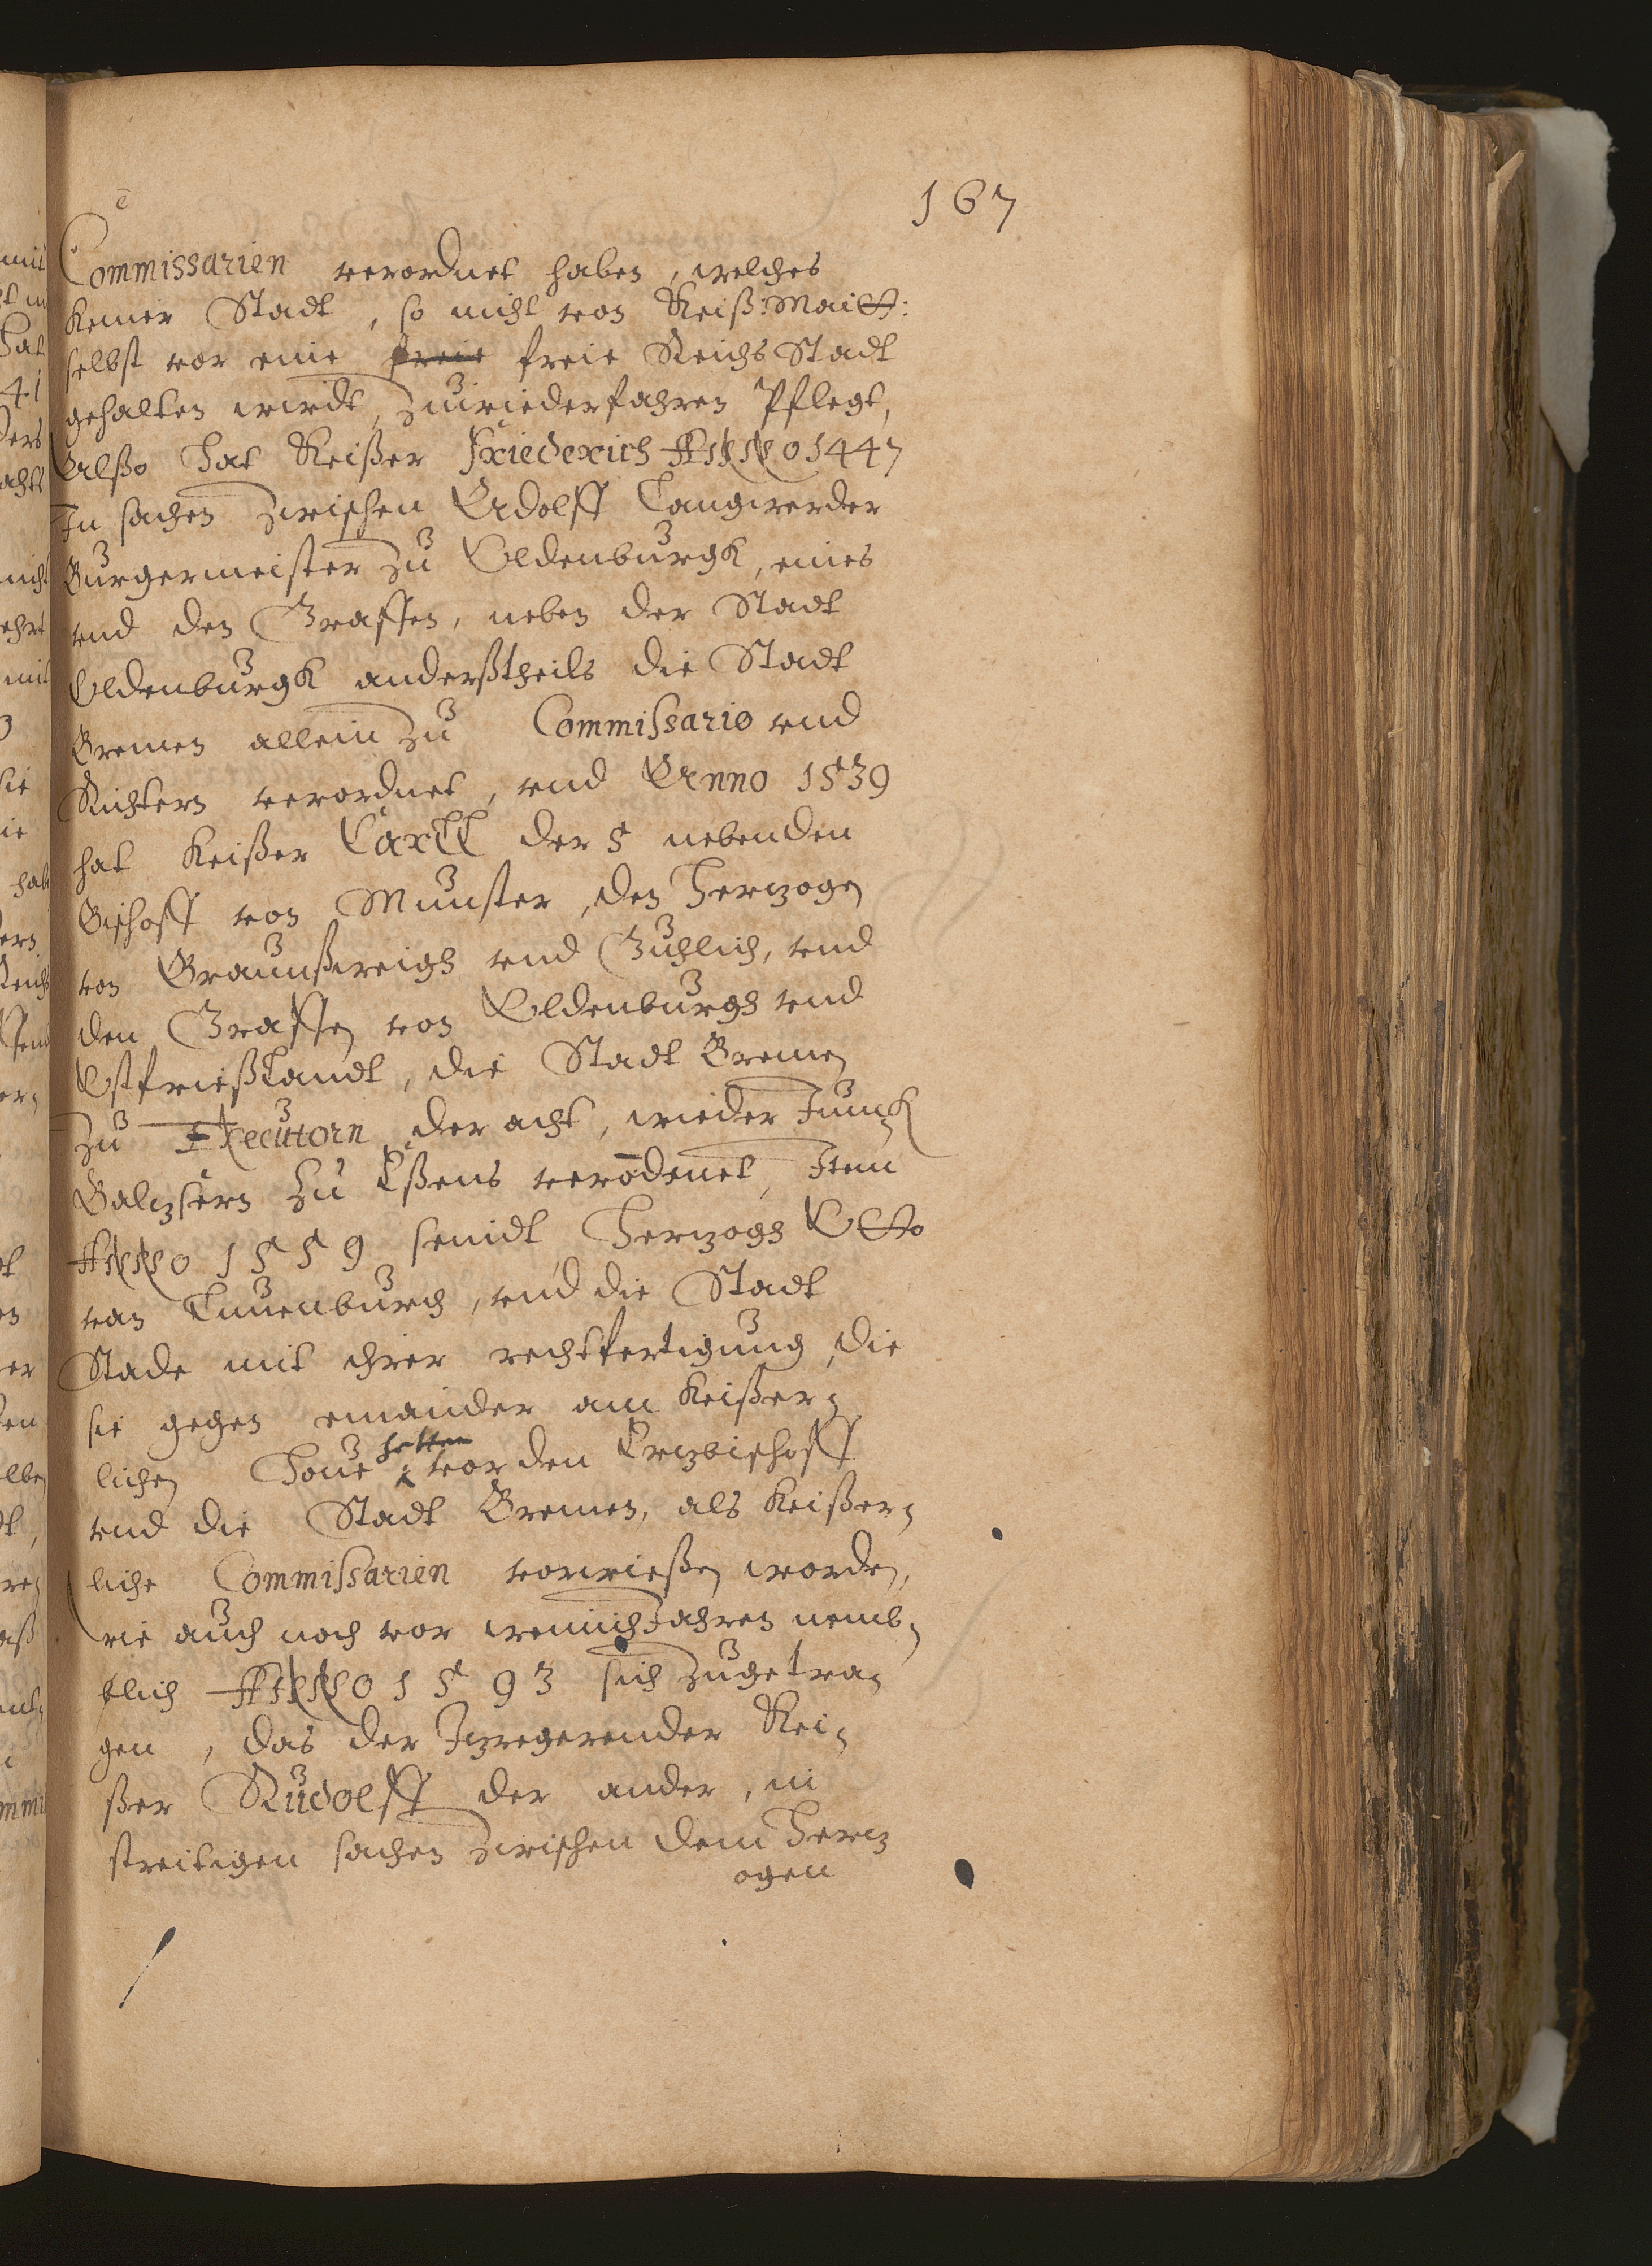 167
Commissarien verordnet haben, welches
keiner Stadt, so nicht von Keiß: Maitt:
selbst vor eine freie freie Reichs Stadt
gehalten wirdt, zuwiederfahren Pflegt,
Alßo hat Keißer Friederich ANNO 1447
In sachen zwischen Adolff Langwerder
Burgermeister zu Oldenburgk, eines
vnd den Graffen, neben der Stadt
Oldenburgk anderßtheils die Stadt
Bremen allein zu Commissario vnd
Richtern verordnet, vnd Anno 1539
hat Keißer Carll der 5 nebenden
Bischoff von Munster, den Hertzogen
von Braunßweigh vnd Guhlich, vnd
den Graffen von Oldenburgh vnd
Ostfrießlandt, die Stadt Bremen
zu Executorn der acht, wieder Junck
Baltzsern zu Eßens verodenet, Item
ANNO 1559 seindt Hertzogh Otto
van Lauenburch, vnd die Stadt
Stade mit ihrer rechtfertigung, die
sie gegen einander am Keißer-
lichen Houe hetten vor den Ertzbischoff
vnd die Stadt Bremen, als Keißer-
liche Commissarien vorwießen worden,
wie auch noch vor wenich Jahren nemb-
tlich ANNO 1593 sich zugetra-
gen, das der Itzregerender Kei-
ßer Rudolff der ander, in
streitigen sachen zwischen dem Hertz
ogen